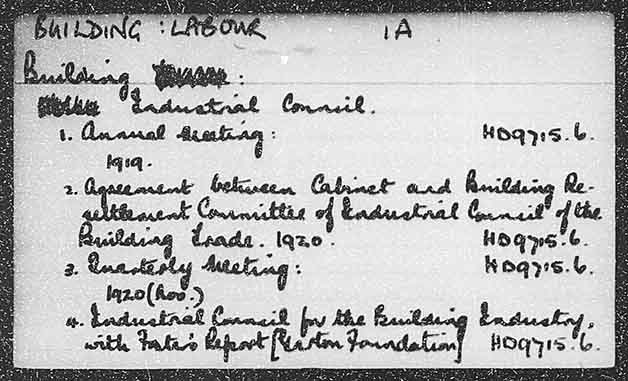 BUILDING : LABOUR 1A
Building :
Industrial Council.
1. Annual Meeting: HD9715.6.
1919.
2. Agreement between Cabinet and Building Re-
settlement Committee of Industrial Council of the
Building Trade. 1920. HD9715.6.
3. Quarterly Meeting: HD9715.6.
1920 (Nov.)
4. Industrial Council for the Building Industry,
with Foster's Report [Garton Foundation] HD9715.6.